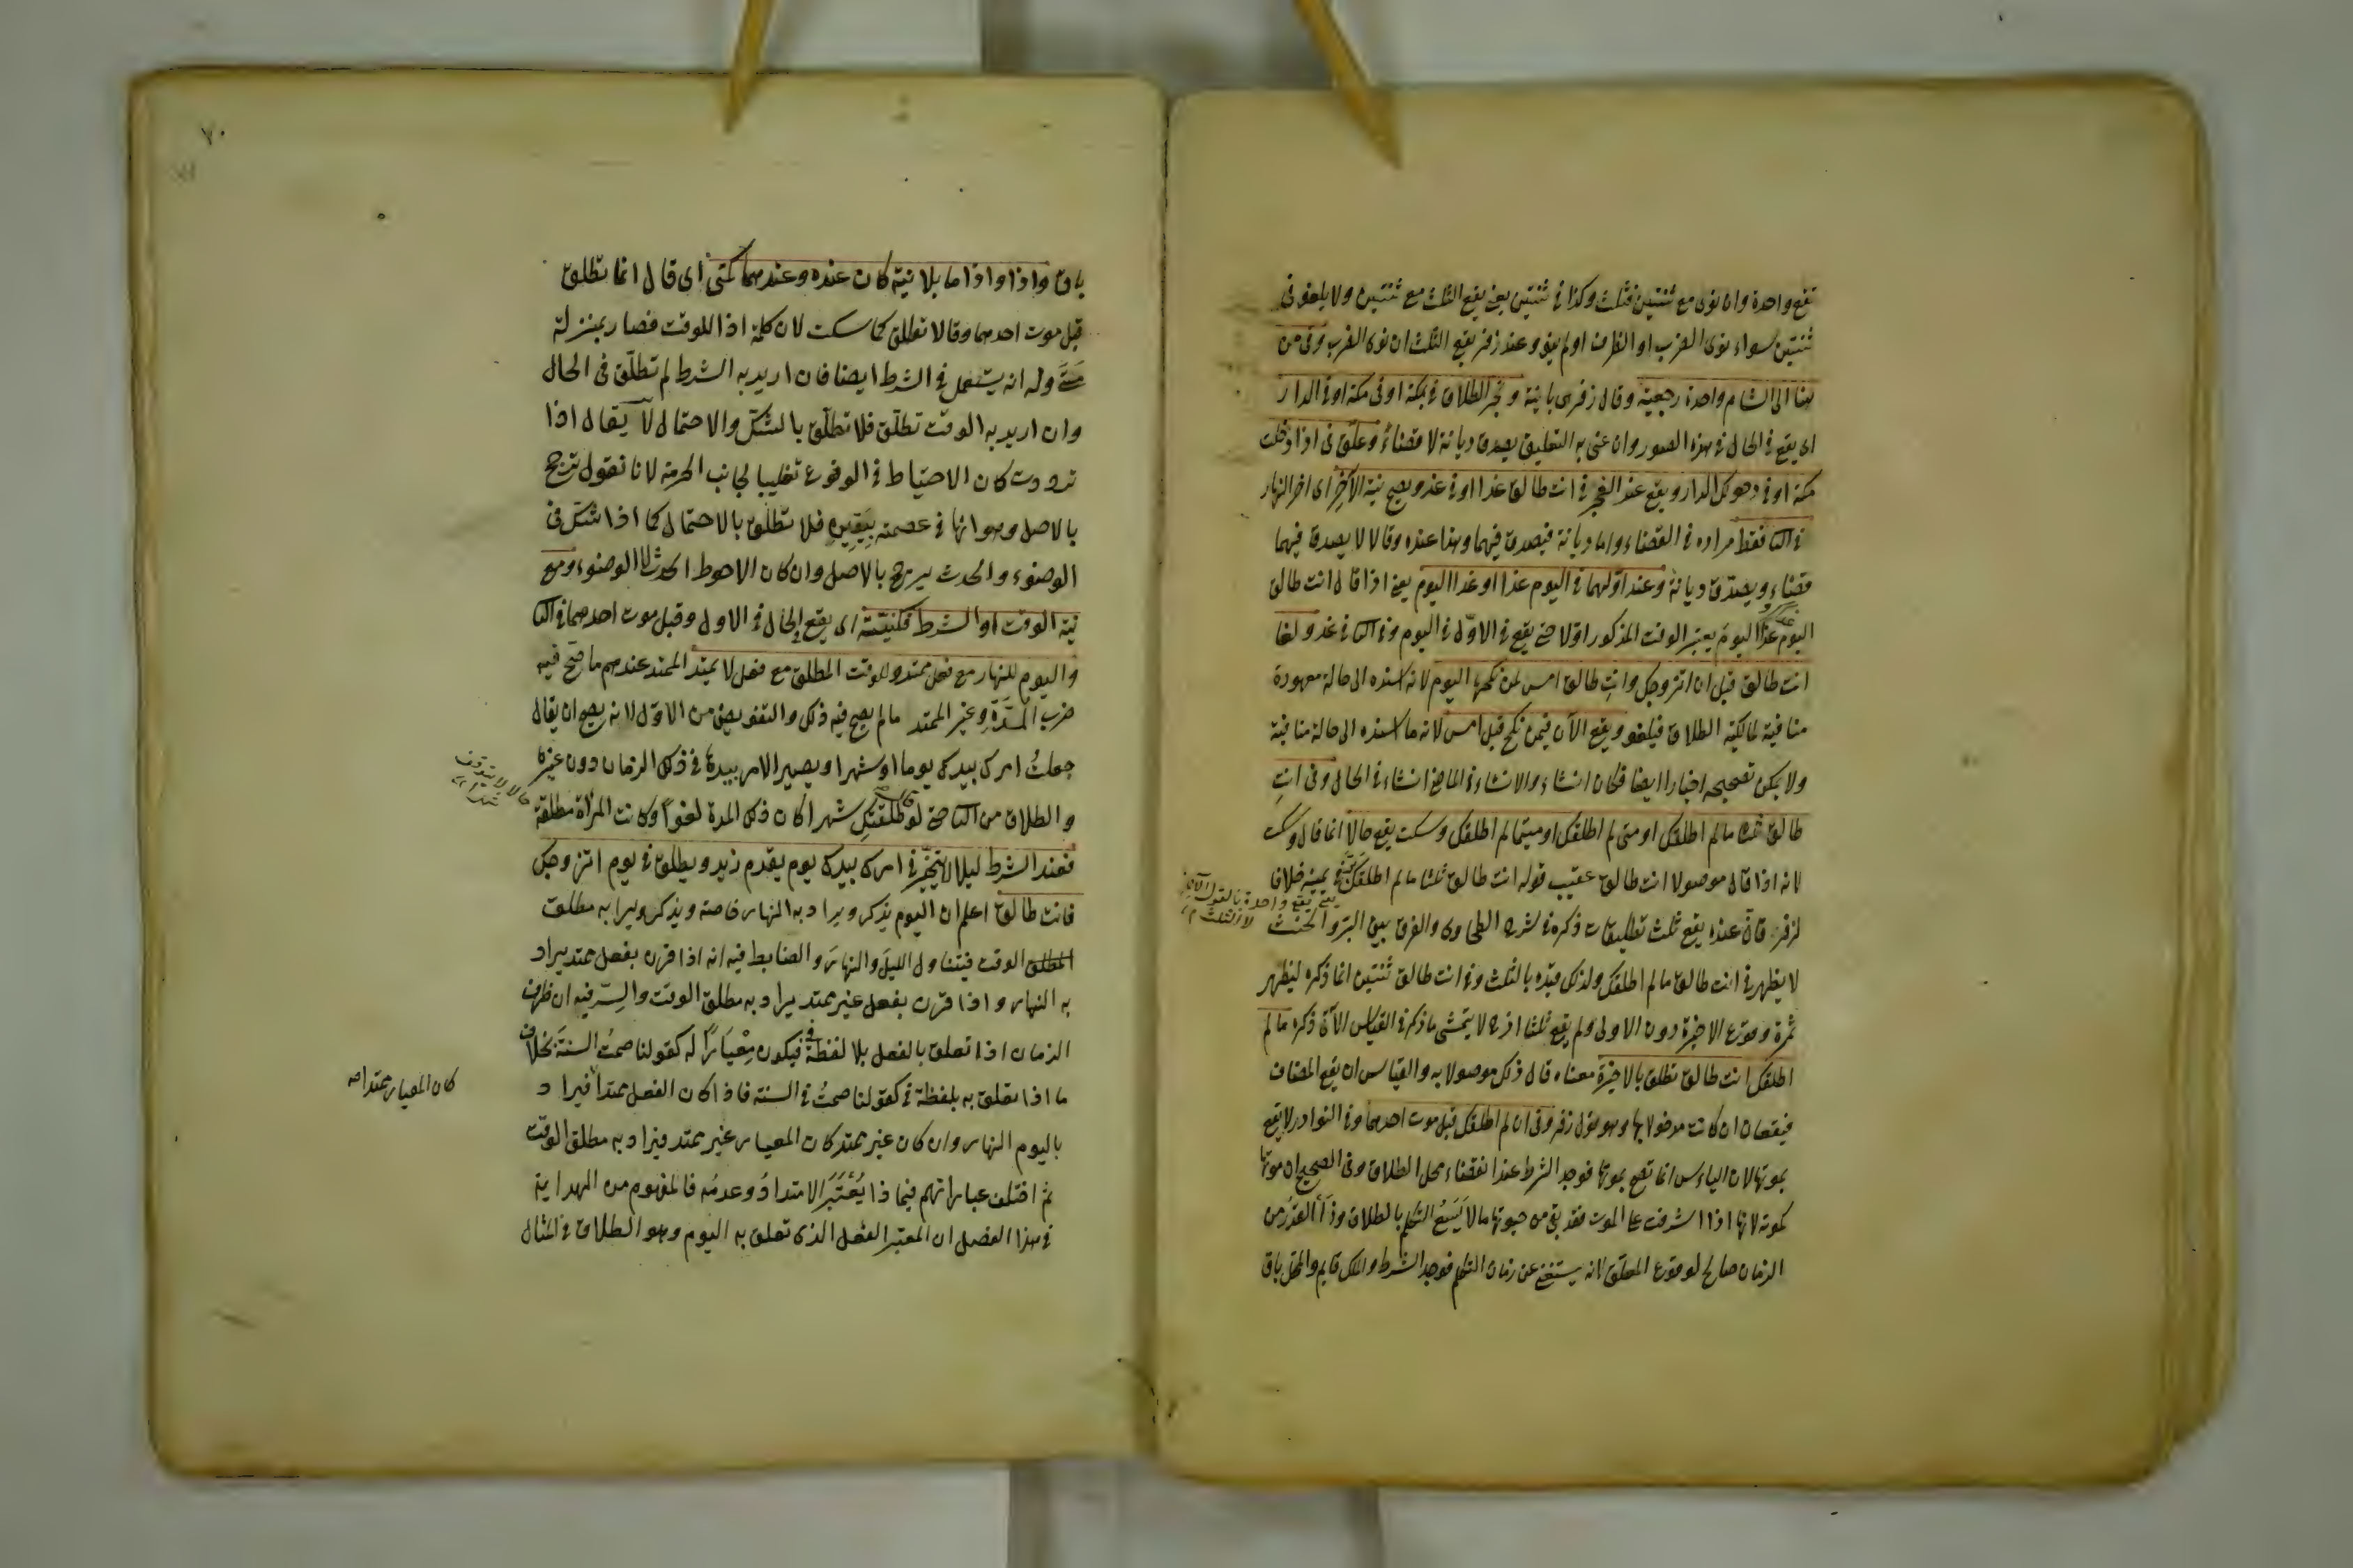 تقع واحدة وان نوى مع ثنتين فثلث وكذا في ثنتين يعني يقع الثلث مع ثنتين ولا يلغو في
ثنتين سواء نوى الضرب او الظرف او لم ينو وعند زفر يقع الثلث ان نوى الضرب وفي من
هنا الى الشام واحدة رجعية وقال زفر هي باينة وتنجز الطلاق في بمكة او في مكة او في الدار
اى يقع في الحال في هذه الصور وان عنى به التعليق يصدق ديانة لا قضاءً وعلّق في اذا دخلت
مكة او في دخولك الدار ويقع عند الفجر في انت طالق غدا او في غد ويصح نية الآخر اى اخر النهار
في الثا فقط مراده في القضاء واما ديانة فيصدق فيهما وهذا عنده وقالا لا يصدق فيهما
قضاء ويصدق ديانة وعند اولهما في اليوم غدا او غدا اليوم يعني اذا قال انت طالق
اليوم غدا اليوم يعتبر الوقت المذكور اولا حتى يقع في الاوّل في اليوم وفي الثا في غد ولغا
انت طالق قبل ان اتزوجك وانت طالق امس لمن نكحها اليوم لانه اسنده الى حالة معهودة
منافية لمالكية الطلاق فيلغو ويقع الآن فيمن نكح قبل امس لانه ما اسنده الى حالة منافية
ولا يمكن تصحيحه اخبارا ايضا فكان انشاء والانشاء في الماضي انشاء في الحال وفي انتِ
طالق ما لم اطلقك او متى لم اطلقك او متيما لم اطلقك وسكت يقع حالاً انما قال وسكت
لانه اذا قال موصولا انت طالق عقيب قوله انت طالق ثلثا ما لم اطلقك يمينه خلافا
يعني يقع واحدة بالقول الآخر
لا الثلث م
لزفر فانّ عنده يقع ثلث تطليقات ذكره في شرح الطحاوى والفرق بين البرّ والحنث
لا يظهر في انت طالق ما لم اطلقك ولذلك قيّده بالثلث وفي انت طالق ثنتين انما ذكره ليظهر
ثمرة وقوع الاخيرة دون الاولى ولم يقع ثلثا اذح لا يتمشى ما ذكر في القياس الآتى ذكره ما لم
اطلقك انت طالق تطلق بالاخيرة معناه قال ذلك موصولا به والقياس ان يقع المضاف
فيقعان ان كانت مدخولا بها وهو قول زفر وفي ان لم اطلقك قبل موت احدهما وفي النوادر لا يقع
بموتها لان الياءس انما تقع بموتها فوجد الشرط عند انقضاء محل الطلاق وفي الصحيح ان موتها
كموته لانها اذا اشرفت على الموت فقد بقي من حيوتها ما لا يَسَعُ التكلم بالطلاق وذا القدر من
الزمان صالح لوقوع المعلّق لانه يستغني عن زمان التكلم فوجد الشرط والملك قايم والمحل باق
٧٠
باق واذا واذا ما بلا نية كان عنده وعندهما كمتى اى قال انما تطلق
قبل موت احدهما وقالا تطلق كما سكت لان كلمة اذا للوقت فصار بمنزلة
متى وله انه يستعمل في الشرط ايضا فان اريد به الشرط لم تطلّق في الحال
وان اريد به الوقت تطلّق فلا تطلّق بالشك والاحتمال لا يقال اذا
ترددت كان الاحتياط في الوقوع تغليبا لجانب الحرمة لانا نقول ترجح
بالاصل وهو انها في عصمته بيقين فلا تطلق بالاحتمال كما اذا شكّ في
الوضوء والحدث يرجح بالاصل وان كان الاحوط الحدث لا الوضوء ومع
نية الوقت او الشرط فكنيته اى يقع الحال في الاول وقبل موت احدهما في الثا
واليوم للنهار مع فعل ممتد وللوقت المطلق مع فعل لا يمتد الممتد عندهم ما صح فيه
ضرب المدّة وغير الممتد ما لم يصح فيه ذلك والتفويض من الاوّل لانه يصح ان يقال
جعلتُ امرك بيدك يوما او شهرا ويصير الامر بيدها في ذلك الزمان دون غيره
والطلاق من الثا حتى لو قال طلقتكِ شهرا كان ذلك المدة لغوًا وكانت المرأة مطلقة
حالا لا يتوقف
شهرا
فعند الشرط ليلا لا يتخير في امرك بيدك يوم يقدم زيد ويطلق في يوم اتزوجك
فانت طالق اعلم ان اليوم يذكر ويراد به النهار خاصة ويذكر ويراد به مطلق
الوقت فيتناول الليل والنهار والضابط فيه انه اذا قرن بفعل ممتد يراد
به النهار واذا قرن بفعل غير ممتد يراد به مطلق الوقت والسِرّ فيه ان ظرف
الزمان اذا تعلق بالفعل بلا لفظة في فيكون مِعْيَارًا له كقولنا صمتُ السنة بخلاف
ما اذا تعلق به بلفظة في كقولنا صمتُ في السنة فاذا كان الفعل ممتدا فيراد
كان المعيار ممتدا صح
باليوم النهار وان كان غير ممتد كان المعيار غير ممتد فيراد به مطلق الوقت
ثم اختلف عباراتهم فيما ذا يُعْتَبَر الامتدادُ وعدمُه فالمفهوم من الهداية
في هذا الفصل ان المعتبر الفعل الذى تعلق به اليوم وهو الطلاق في المثال